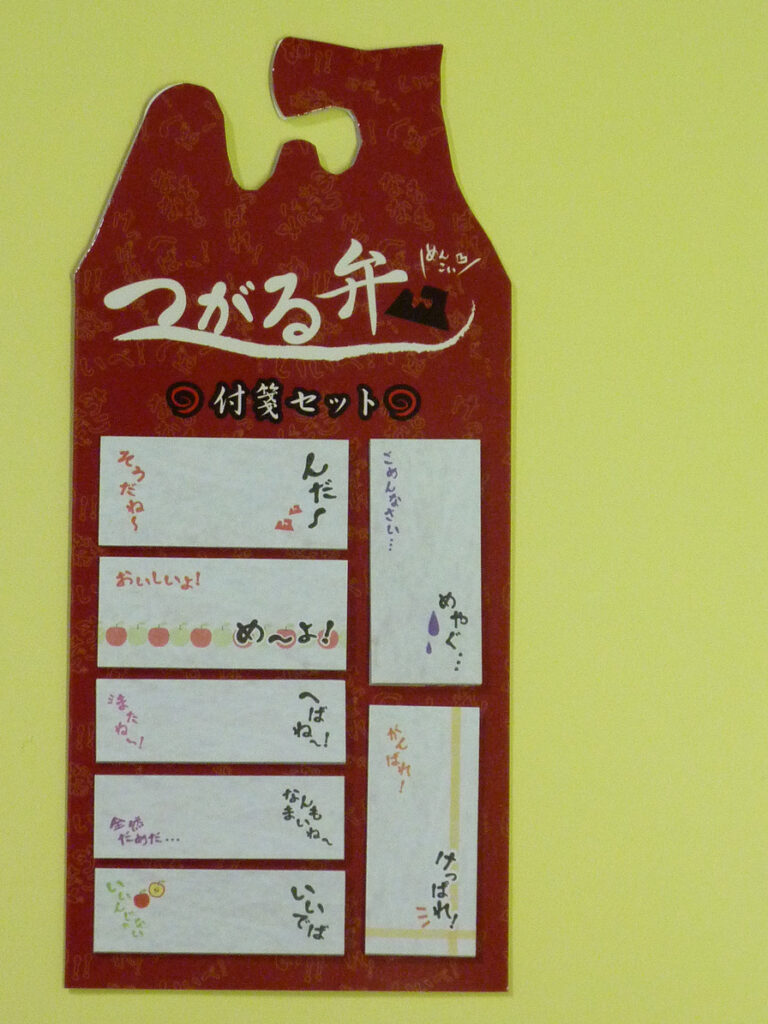 めんこい
つがる弁
付箋セット
そうだね〜
んだ〜
おいしいよ!
め〜よ!
またね〜!
へばね〜!
全然
だめだ…
なんも
まいね〜
いいんじゃない
いいでば
ごめんなさい…
めやぐ…
がんばれ!
けっぱれ!